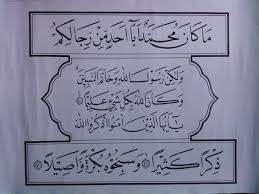 مَا كَانَ مُحَمَّدٌ أَبَا أَحَدٍ مِنْ رِجَالِكُمْ
وَلَكِنْ رَسُولَ اللهِ وَخَاتَمَ النَّبِيِّينَ
وَكَانَ اللهُ بِكُلِّ شَيْءٍ عَلِيمًا
يَا أَيُّهَا الَّذِينَ آمَنُوا اذْكُرُوا اللهَ
ذِكْرًا كَثِيرًا وَسَبِّحُوهُ بُكْرَةً وَأَصِيلًا